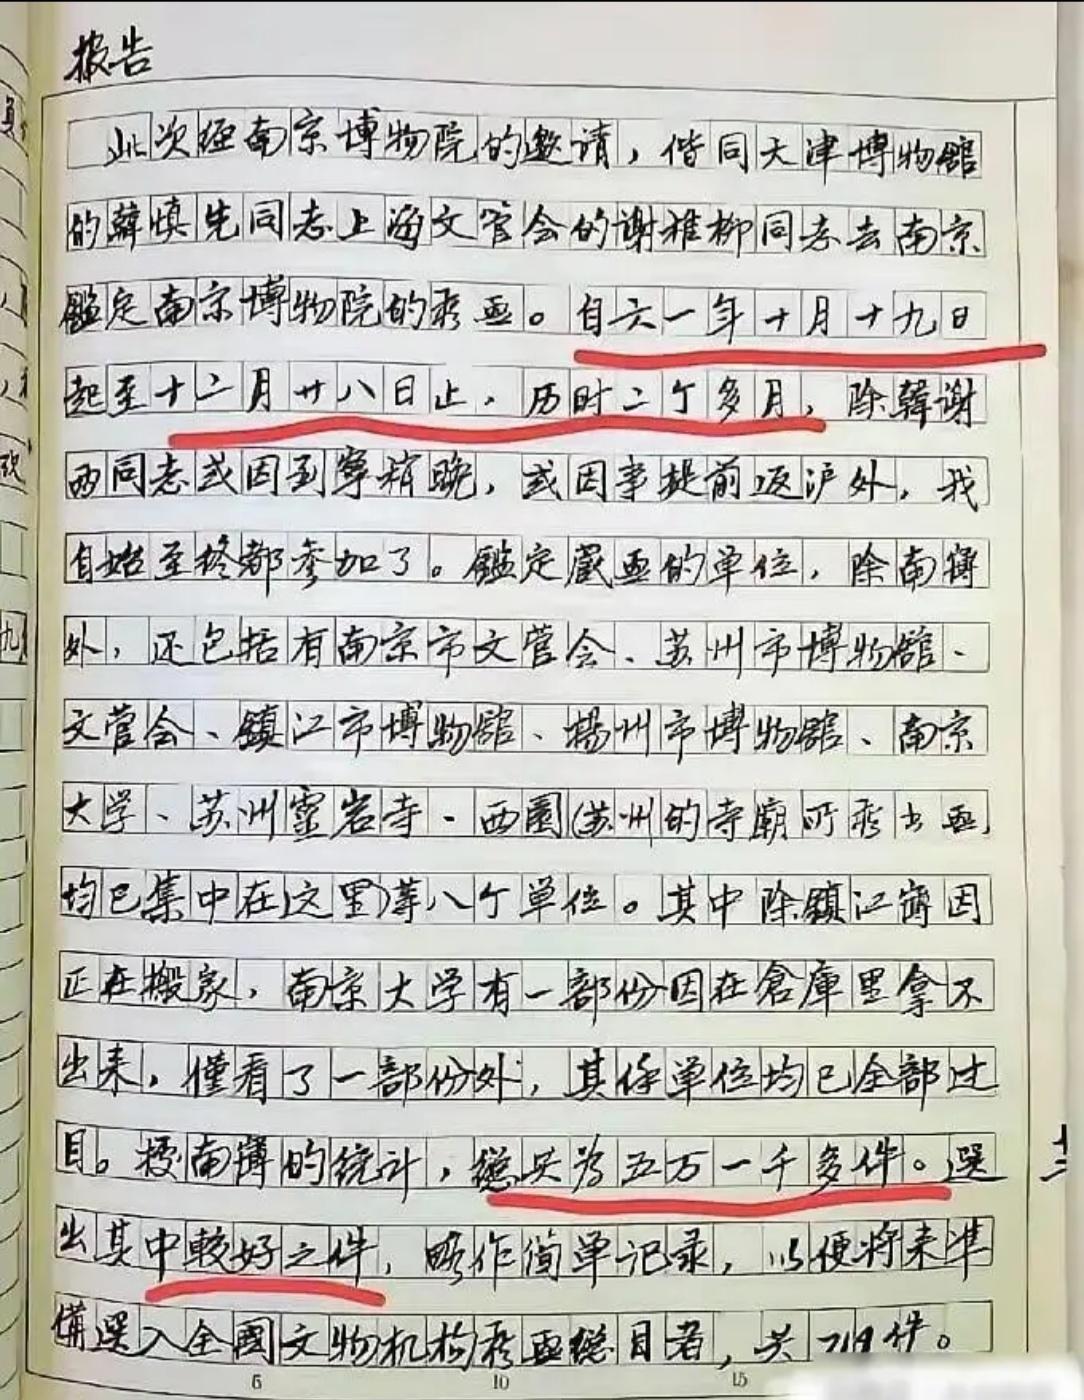 报告
此次经南京博物院的邀请，偕同天津博物館
的韓慎先同志上海文管会的谢稚柳同志去南京
鑑定南京博物院的藏画。自六一年十月十九日
起至十二月廿八日止，历时二个多月，除韓谢
两同志或因到寧稍晚，或因事提前返沪外，我
自始至终都参加了。鑑定藏画的单位，除南博
外，还包括有南京市文管会、苏州市博物館、
文管会、鎮江市博物館、揚州市博物館、南京
大学、苏州靈岩寺、西園（苏州的寺廟所藏书画，
均已集中在这里）等八个单位。其中除鎮江博因
正在搬家，南京大学有一部份因在倉庫里拿不
出来，僅看了一部份外，其他单位均已全部过
目。按南博的统计，總共为五万一千多件。选
出其中較好之件，略作简单记录，以便将来准
備選入全國文物机构藏画總目者，共719件。
十二
5 10 15